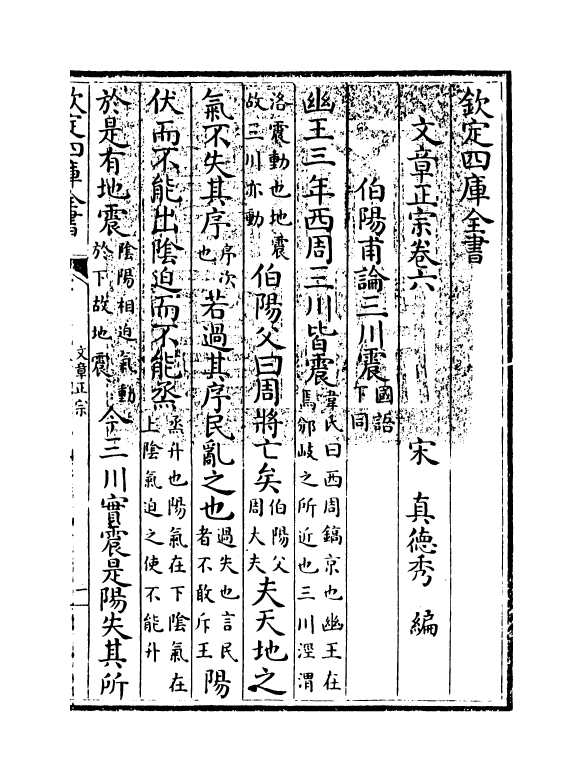 欽定四庫全書
文章正宗卷六
宋 真德秀 編
伯陽甫論三川震國語下同
幽王三年西周三川皆震韋氏曰西周鎬京也幽王在焉邠岐之所近也三川涇渭
洛震動也地震故三川亦動伯陽父曰周將亡矣伯陽父周大夫夫天地之
氣不失其序序次也若過其序民亂之也過失也言民者不敢斥王陽
伏而不能出陰迫而不能烝烝升也陽氣在下陰氣在上陰氣迫之使不能升
於是有地震陰陽相迫氣動於下故地震今三川實震是陽失其所
欽定四庫全書
文章正宗
一